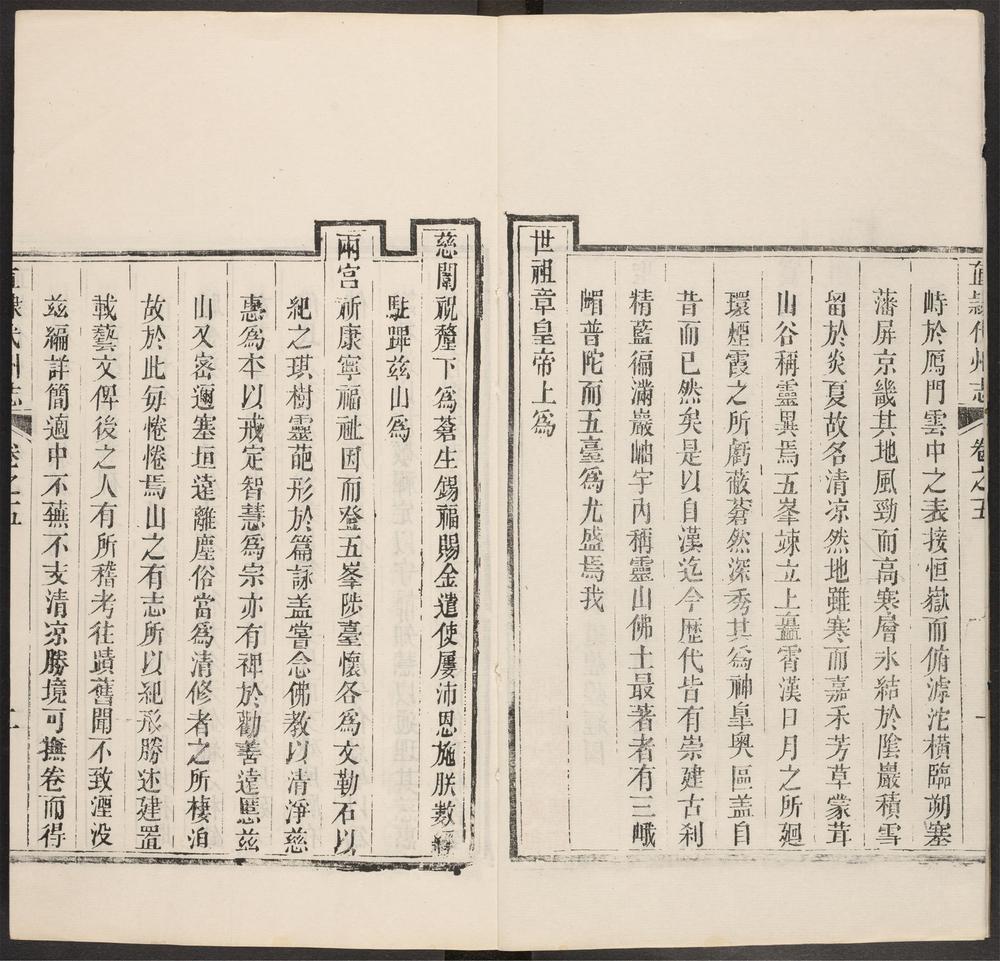 直隸代州志 卷之五 一
峙於鴈門雲中之表接恒嶽而俯滹沱橫臨朔塞
藩屏京畿其地風勁而高寒層氷結於陰巖積雪
留於炎夏故名清凉然地雖寒而嘉禾芳草蒙茸
山谷稱靈異焉五峯竦立上矗霄漢日月之所廻
環煙霞之所虧蔽蒼然深秀其爲神臯奧區盖自
昔而已然矣是以自漢迄今歴代皆有崇建古刹
精藍徧滿巖岫宇內稱靈山佛土最著者有三峨
嵋普陀而五臺爲尤盛焉我
世祖章皇帝上爲
慈闈祝釐下爲蒼生錫福賜金遣使屢沛恩施朕數經
駐蹕兹山爲
兩宫祈康寧福祉因而登五峯陟臺懷各爲文勒石以
紀之琪樹靈葩形於篇詠盖嘗念佛教以清淨慈
惠爲本以戒定智慧爲宗亦有裨於勸善遠慝兹
山又密邇塞垣遠離塵俗當爲清修者之所棲泊
故於此毎惓惓焉山之有志所以紀形勝述建置
載藝文俾後之人有所稽考往蹟舊聞不致湮没
兹編詳簡適中不蕪不支清凉勝境可撫卷而得
直隸代州志 卷之五 二